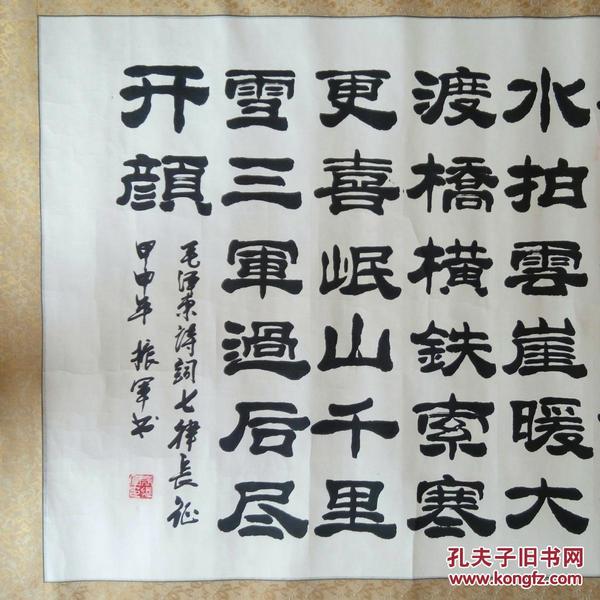 水拍雲崖暖大
渡橋橫鉄索寒
更喜岷山千里
雪三軍過后尽
开顔
毛泽东詩詞七律長征
甲申年振军书
孔夫子旧书网
www.kongfz.com